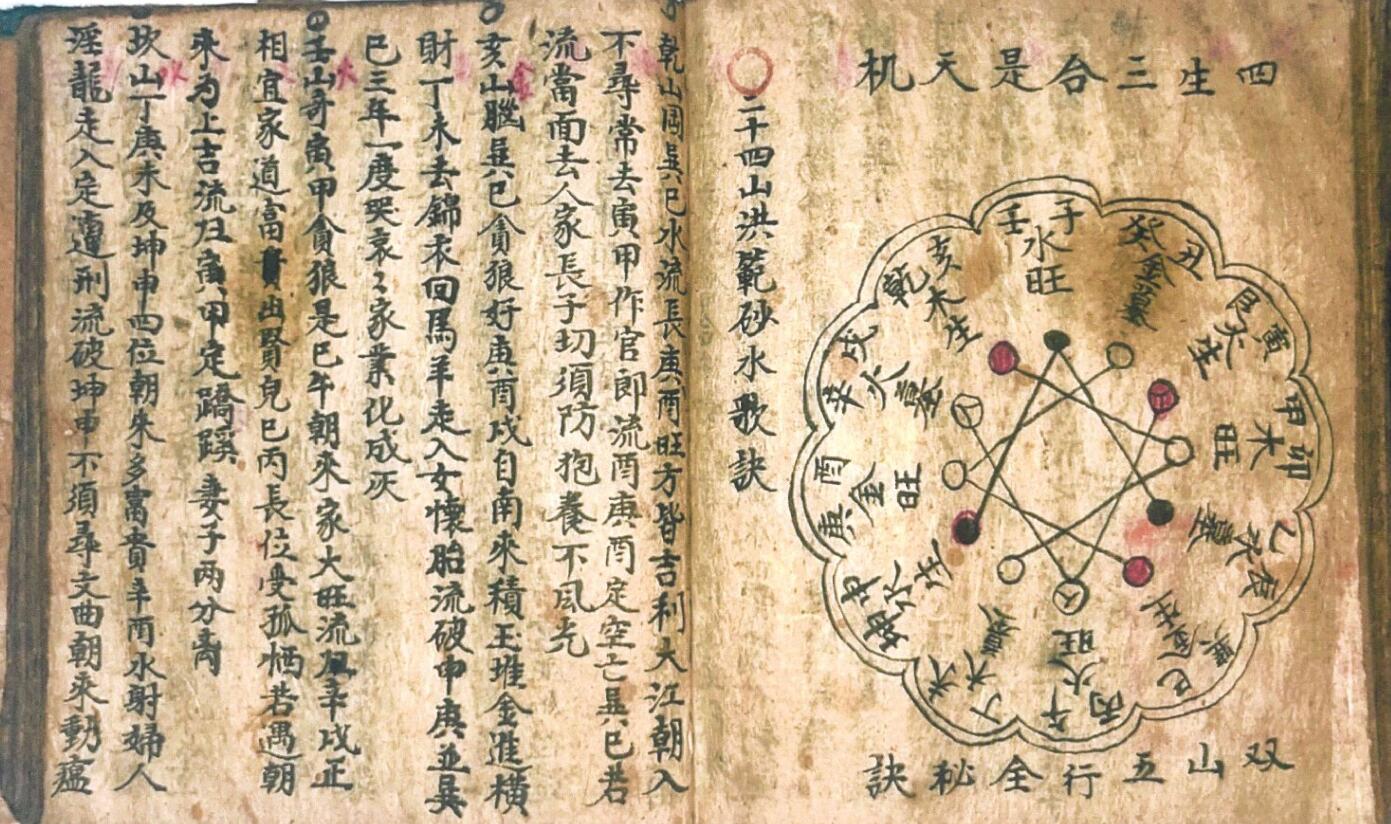 四生三合是天机
壬子水旺
癸丑金墓
艮寅火生
甲卯木旺
乙辰水墓
巽巳金生
丙午火旺
丁未木墓
坤申水生
庚酉金旺
辛戌火墓
乾亥木生
双山五行全秘訣
二十四山洪範砂水歌訣
乾山岡巽巳水流長庚酉旺方皆吉利大江朝入
不尋常去寅甲作官郎流酉庚酉定空亡巽巳若
流當面去人家長子切須防抱養不風光
亥山腦巽巳貪狼好庚酉戌自南來積玉堆金進橫
財丁未去錦衣回馬羊走入女懷胎流破申庚並巽
巳三年一度哭哀〻家業化成灰
壬山奇寅甲貪狼是巳午朝來家大旺流辛戌正
相宜家道富貴出賢兒巳丙長位受孤恓若遇朝
來為上吉流归寅甲定蹊妻子两分离
坎山丁庚未及坤申四位朝來多富貴辛酉水射婦人
淫龍走入定遭刑流破坤申不須尋文曲朝來動瘟
金
水
火